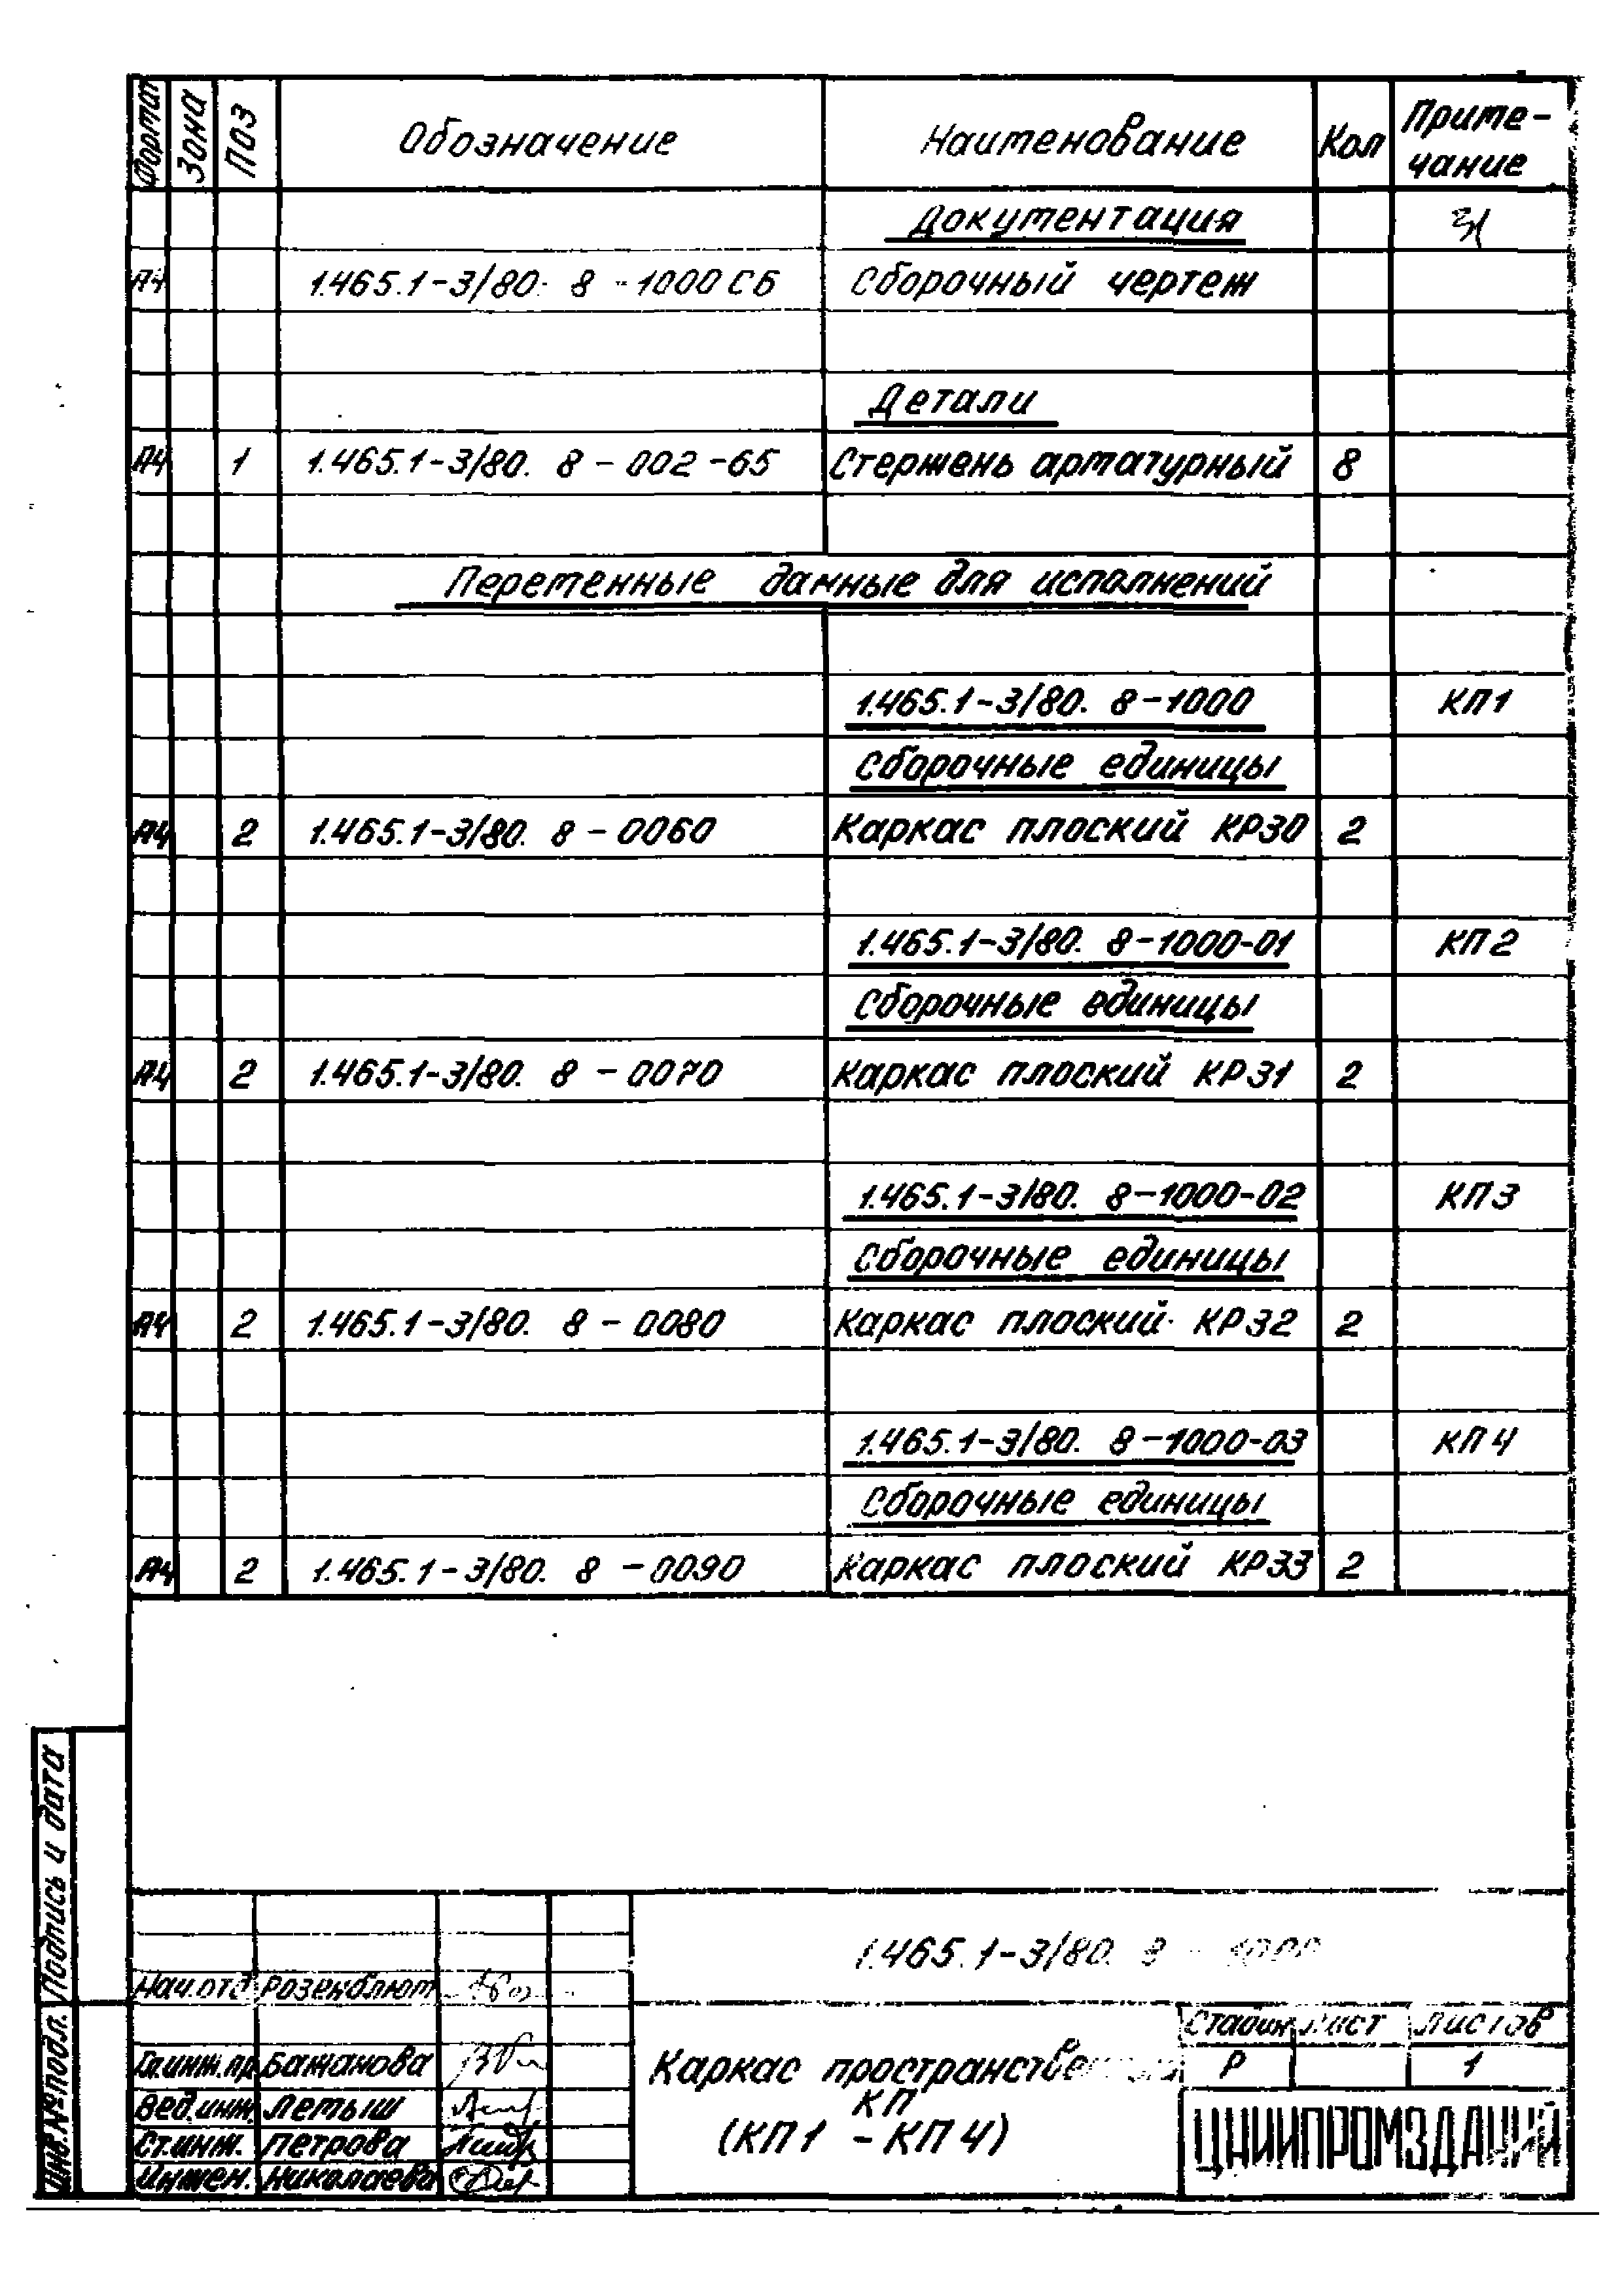 Формат Зона Поз Обозначение Наименование Кол Приме-
чание
Документация 31
А4 1.465.1-3/80. 8-1000 СБ Сборочный чертеж
Детали
А4 1 1.465.1-3/80. 8-002-65 Стержень арматурный 8
Переменные данные для исполнений
1.465.1-3/80. 8-1000 КП1
Сборочные единицы
А4 2 1.465.1-3/80. 8-0060 Каркас плоский КР30 2
1.465.1-3/80. 8-1000-01 КП2
Сборочные единицы
А4 2 1.465.1-3/80. 8-0070 Каркас плоский КР31 2
1.465.1-3/80. 8-1000-02 КП3
Сборочные единицы
А4 2 1.465.1-3/80. 8-0080 Каркас плоский КР32 2
1.465.1-3/80. 8-1000-03 КП4
Сборочные единицы
А4 2 1.465.1-3/80. 8-0090 Каркас плоский КР33 2
Подпись и дата
Инв.№подл.
1.465.1-3/80. 8-1000
Нач.отд Розенблюм
Гл.инж.пр. Бажанова
Вед.инж. Лемыш
Ст.инж. Петрова
Инжен. Николаева
Каркас пространственный
КП
(КП1 - КП4)
Стадия Лист Листов
Р 1
ЦНИИПРОМЗДАНИЙ